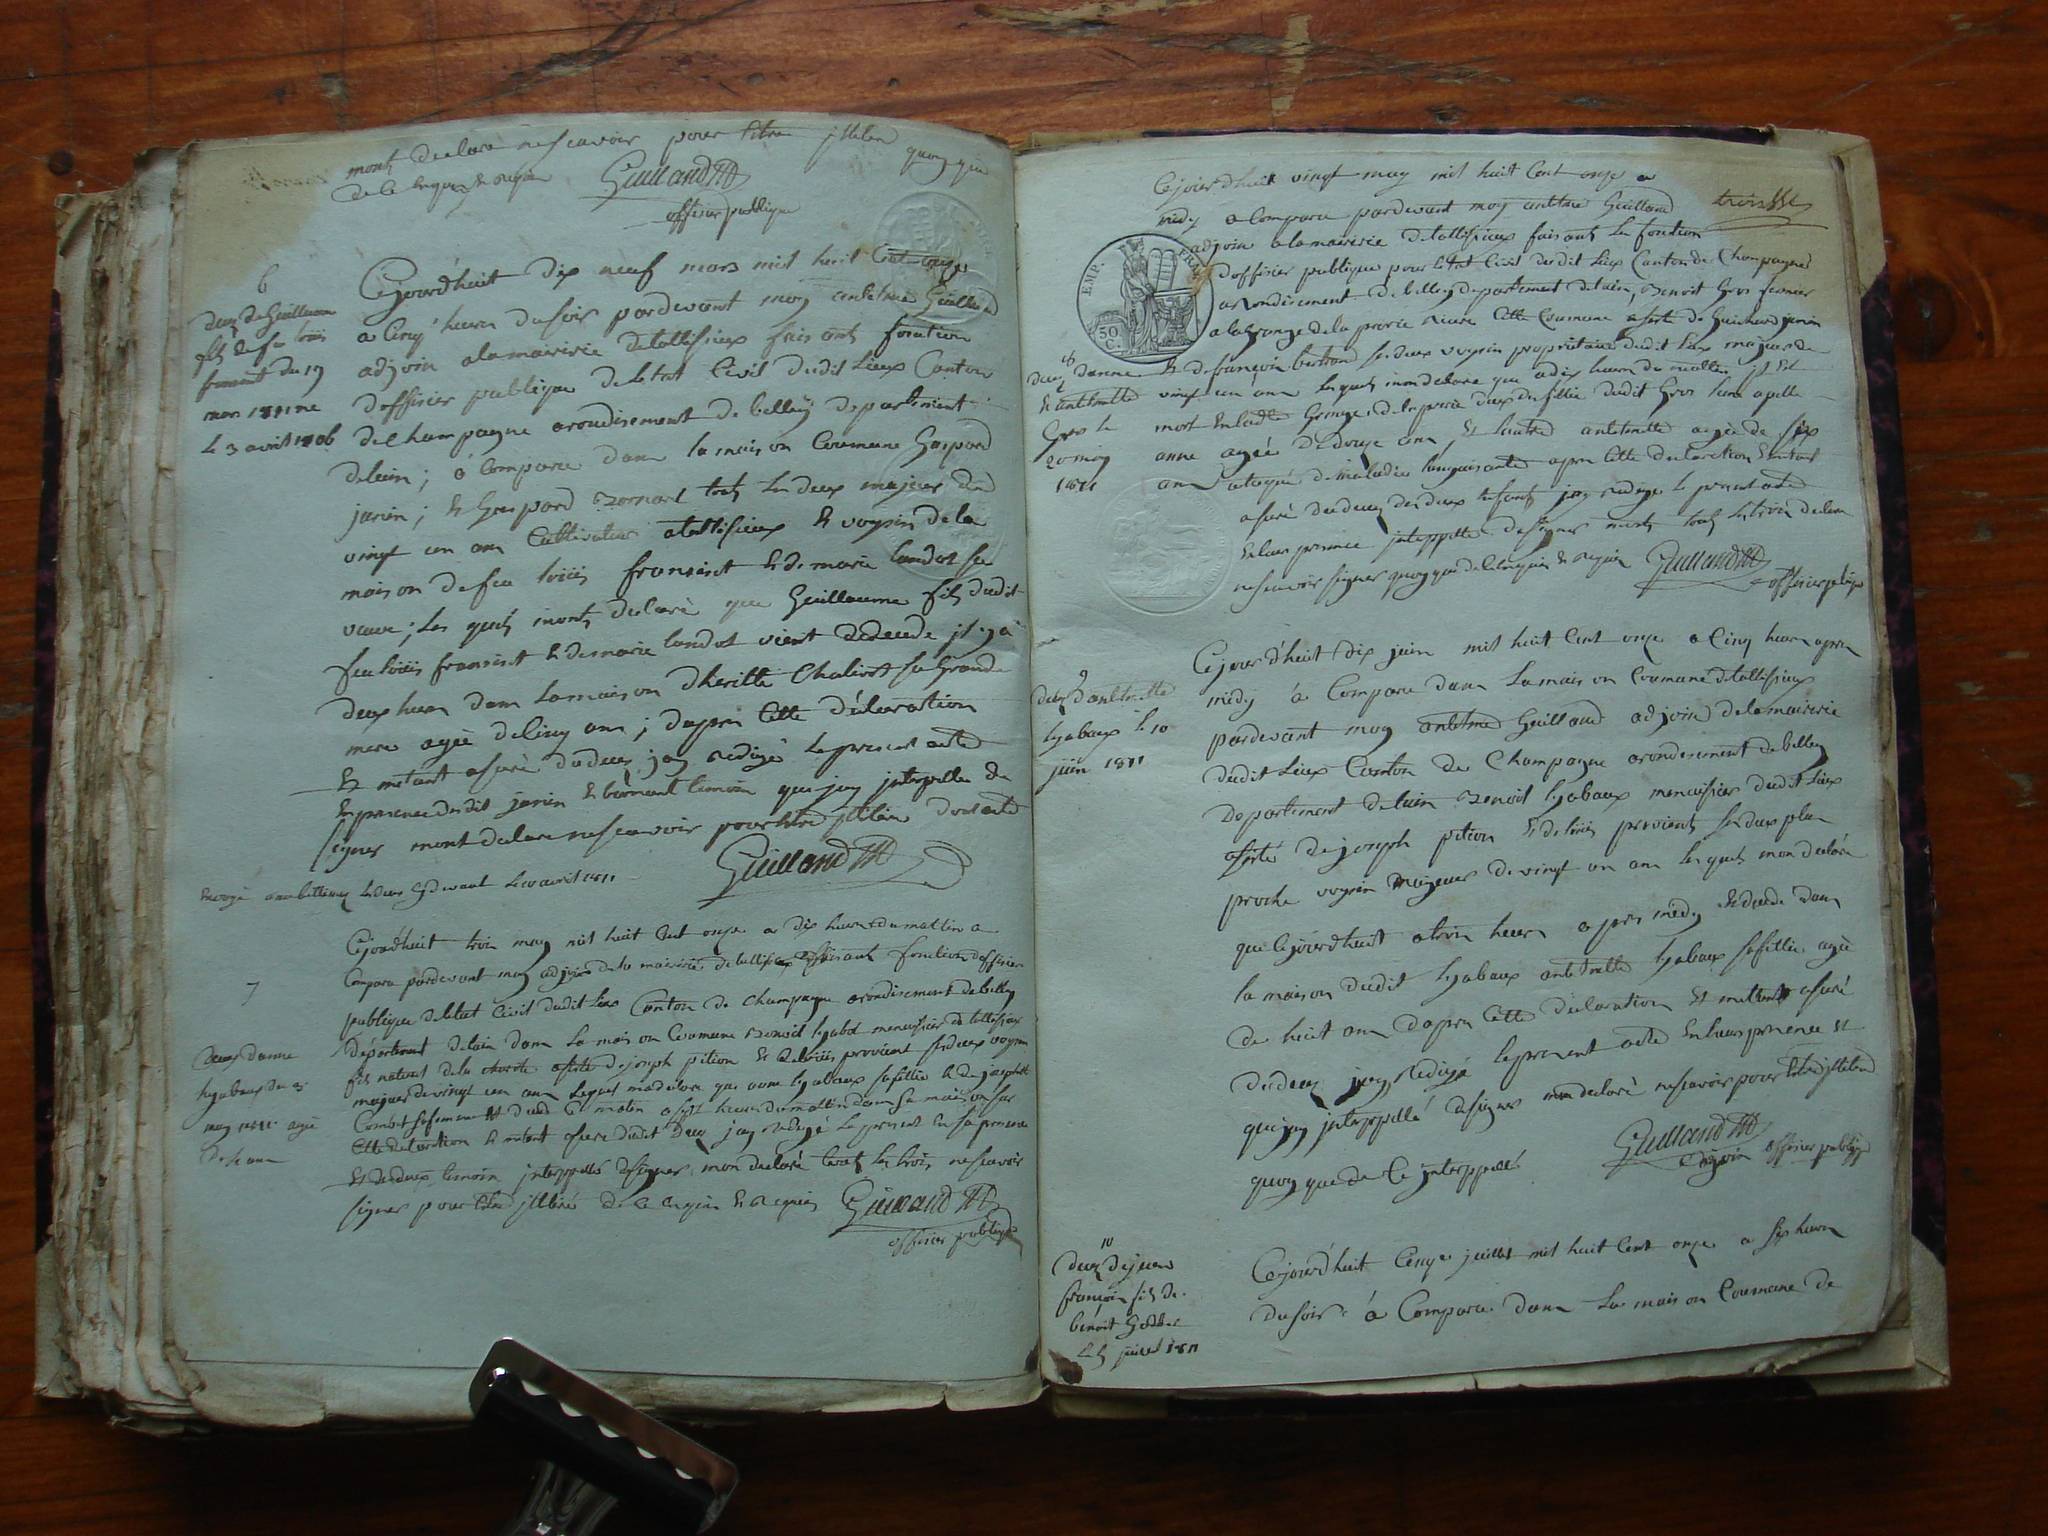 mont declare ne scavoir pour litre jlleten quoy que
de ce enquis & requis Guilland
offisier publique
6
deces de Guillaume
fils de feu loüis
fransint du 19
mars 1811 ne
le 3 avril 1806
Cejourdhuit dix neuf mars mil huit Cent onze
a Cinq heure du soir pardevant moy antelme Guilland
adjoin a la mairiere de tallisieux faisant fonction
doffisier publique de letat Civil dudit Lieux Canton
de Champagne arondisement de belley departement
delain ; à Compare dans la maison Coumune Gaspard
janin ; & Gaspard Bornant tout les deux majeur de
vingt un ans Cultivateur a tallisieux & voysin de la
maison de feu loüis fransint & de marie landot sa
veuve ; les quels mont declaré que Guillaume fils dudit
feu loüis fransint & de marie landot vient de decede jl y a
deux heure dans la maison dherille Chaliert sa Grande
mere agée de Cinq ans ; dapres Cette déclaration
Et metant asuré du deces jay redigé le present acte
En presence dudit janin & bornant temoin que jay jnterpelle de
signer mont declare ne scavoir pour litre jlleten dont acte
Guilland
Envoyé a belley les deces cy devant le 10 avril 1811
7
deces danne
lyabeux du 3
may 1811 agée
de ans
Cejourdhuit trois may mil huit Cent onze a dix heure du mattin a
Compara pardevant moy adjoin de la mairiere de tallisieux faisant fonction doffisier
publique de letat Civil dudit Lieux Canton de Champagne arondisement de belley
département delain dans la maison Coumune Benoit lyabot menuisier de tallisieux
fils naturel de la charite asisté de joseph pition Et de loüis provient ses deux voysin
majeur de vingt un ans lequel ma declare que anne lyabeux sa fille & de josephte
Combet sa femme Et deced Ce matin a sept heure du mattin dans sa maison sur
Cette declaration & metant asure dudit deces jay redigé le present En sa presence
Et de deux temoin jnterppellé de signer mon declaré tout les trois ne scavoir
signer pour litre jlleteré de ce enquis & requis Guilland
offisier publique
troisse
Cejourdhuit vingt may mil huit Cent onze a
midy a Compara pardevant moy antelme Guilland
adjoin a la mairiere de tallisieux faisant les fonction
EMP. FRAN.
50
C.
doffisier publique pour letat Civil dudit Lieux Canton de Champagne
arondisement de belley departement delain, Benoit Gros fermier
a la Grange de la prairie riere Cette Coumune asisté de Guichard janin
& de françois bertrand ses deux voysin propriétaire dudit Lieux majeur de
vingt un ans les quels mon declare que a dix heure du mattin jl Est
mort En ladite Grange de la prerie deux des fillie dudit Gros lune apelle
anne agée de douze ans, Et lautre antelmette agée de six
ans atagué de maladie languisante apres Cette declaration & metant
asuré du deces des deux Enfants jay redigé le present acte
En leur presence jnterppellé de signer mont tout les trois declare
ne scavoir signer quoy que de ce enquis & requis Guilland
offisier publique
8
deces danne
Et antelmette
Gros le
20 may
1811
9
deces dantelmette
lyabeux le 10
juin 1811
Cejourdhuit dix juin mil huit Cent onze a Cinq heure apres
midy à Compara dans la maison Coumune de tallisieux
pardevant moy antelme Guilland adjoin de la mairerie
dudit Lieux Canton de Champagne arondisement de belley
departement delain Benoit lyabeux menuisier dudit Lieux
asisté de joseph pition Et de loüis provient ses deux plus
proche voysin majeur de vingt un ans les quels mon declaré
que Cejourdhuit a trois heure apres midy Est decede dans
la maison dudit lyabeux antelmette lyabeux sa fillie agée
de huit ans dapres Cette déclaration Et metant asuré
du deces jay redigé le present acte En leur presence Et
que jay jnterppellé de signer mon declaré ne scavoir pour litre jlleten
quoy que de Ce jnterppellé Guilland
adjoin offisier publique
10
deces de jean
françois fils de
benoit Godder
juillet 1811
Cejourdhuit Cinq juillet mil huit Cent onze a six heure
du soir à Compara dans la maison Coumune de